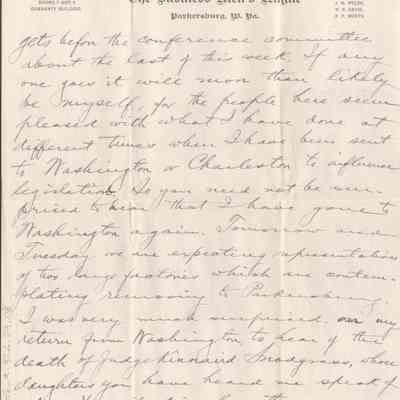 ROOMS 7 AND 8
GUARANTY BUILDING.
The Business Men's League
Parkersburg, W. Va.
gets before the conference committee
about the last of this week. If any
one goes it will more than likely
be myself, for the people here seem
pleased with what I have done at
different times when I have been sent
to Washington or Charleston to influence
legislation. So you need not be sur-
prised to hear that I have gone to
Washington again. Tomorrow and
Tuesday we are expecting representatives
of two large factories which are contem-
plating removing to Parkersburg.
I was very much surprised, on my
return from Washington, to hear of the
death of Judge Kinnaird Snodgrass, whose
daughters you have heard me speak of